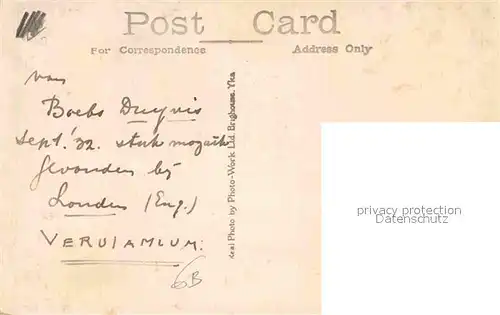 Post Card
For Correspondence Address Only
van
Boebs Duyvis
Sept. '32. stuk mozaïk
gevonden bij
Londen (Eng.)
VERULAMIUM.
6B
Real Photo by Photo-Work Ltd. Brighouse. Yks
privacy protection
Datenschutz